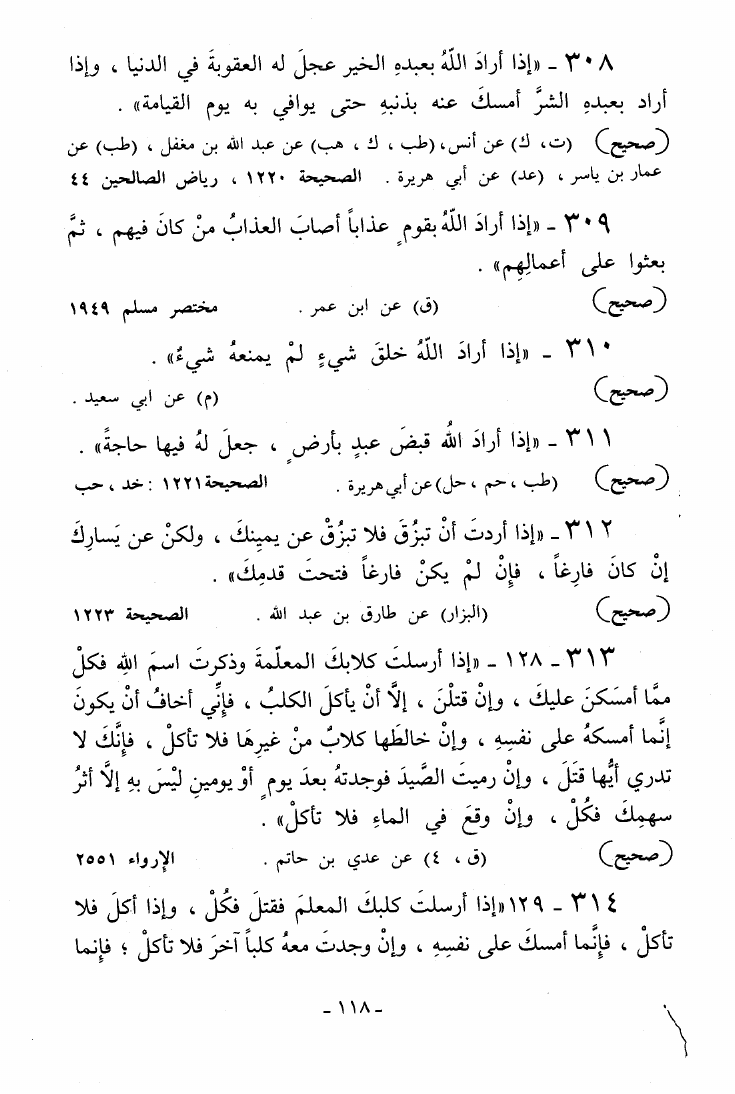 ٣٠٨ ـ «إذا أرادَ اللّهُ بعبدهِ الخير عجلَ له العقوبةَ في الدنيا ، وإذا
أراد بعبدهِ الشرَّ أمسكَ عنه بذنبهِ حتى يوافي به يوم القيامة» .
(صحيح) (ت، ك) عن أنس، (طب ، ك ، هب) عن عبد الله بن مغفل ، (طب) عن
عمار بن ياسر ، (عد) عن أبي هريرة . الصحيحة ١٢٢٠ ، رياض الصالحين ٤٤
٣٠٩ ـ «إذا أرادَ اللّهُ بقومٍ عذاباً أصابَ العذابُ منْ كانَ فيهم ، ثمَّ
بعثوا على أعمالِهِم» .
(صحيح) (ق) عن ابن عمر . مختصر مسلم ١٩٤٩
٣١٠ ـ «إذا أرادَ اللّهُ خلقَ شيءٍ لمْ يمنعهُ شيءٌ» .
(صحيح) (م) عن ابي سعيد .
٣١١ ـ «إذا أرادَ اللهُ قبضَ عبدٍ بأرضٍ ، جعلَ لهُ فيها حاجةً» .
(صحيح) (طب ، حم ، حل) عن أبي هريرة . الصحيحة ١٢٢١ : خد ، حب
٣١٢ ـ «إذا أردتَ أنْ تبزُقَ فلا تبزُقْ عن يمِينكَ ، ولكنْ عن يَسارِكَ
إنْ كانَ فارِغاً ، فإنْ لمْ يكنْ فارغاً فتحتَ قدمِكَ» .
(صحيح) (البزار) عن طارق بن عبد الله . الصحيحة ١٢٢٣
٣١٣ ـ ١٢٨ ـ «إذا أرسلتَ كلابكَ المعلّمةَ وذكرتَ اسمَ اللهِ فكلْ
ممَّا أمسَكنَ عليكَ ، وإنْ قتلْنَ ، إلَّا أنْ يأكلَ الكلبُ ، فإنِّي أخافُ أنْ يكونَ
إنَّما أمسكهُ على نفسِهِ ، وإنْ خالطَها كلابٌ منْ غيرِهَا فلا تأكلْ ، فإنَّكَ لا
تدري أيُّها قتَلَ ، وإنْ رميتَ الصَّيدَ فوجدتهُ بعدَ يومٍ أوْ يومينِ ليْسَ بهِ إلَّا أثرُ
سهمِكَ فكُلْ ، وإنْ وقعَ في الماءِ فلا تأكلْ» .
(صحيح) (ق ، ٤) عن عدي بن حاتم . الإرواء ٢٥٥١
٣١٤ ـ ١٢٩ «إذا أرسلتَ كلبكَ المعلمَ فقتلَ فكُلْ ، وإذا أكلَ فلا
تأكلْ ، فإنَّما أمسكَ على نفسِهِ ، وإنْ وجدتَ معهُ كلباً آخرَ فلا تأكلْ ؛ فإنما
ـ ١١٨ ـ